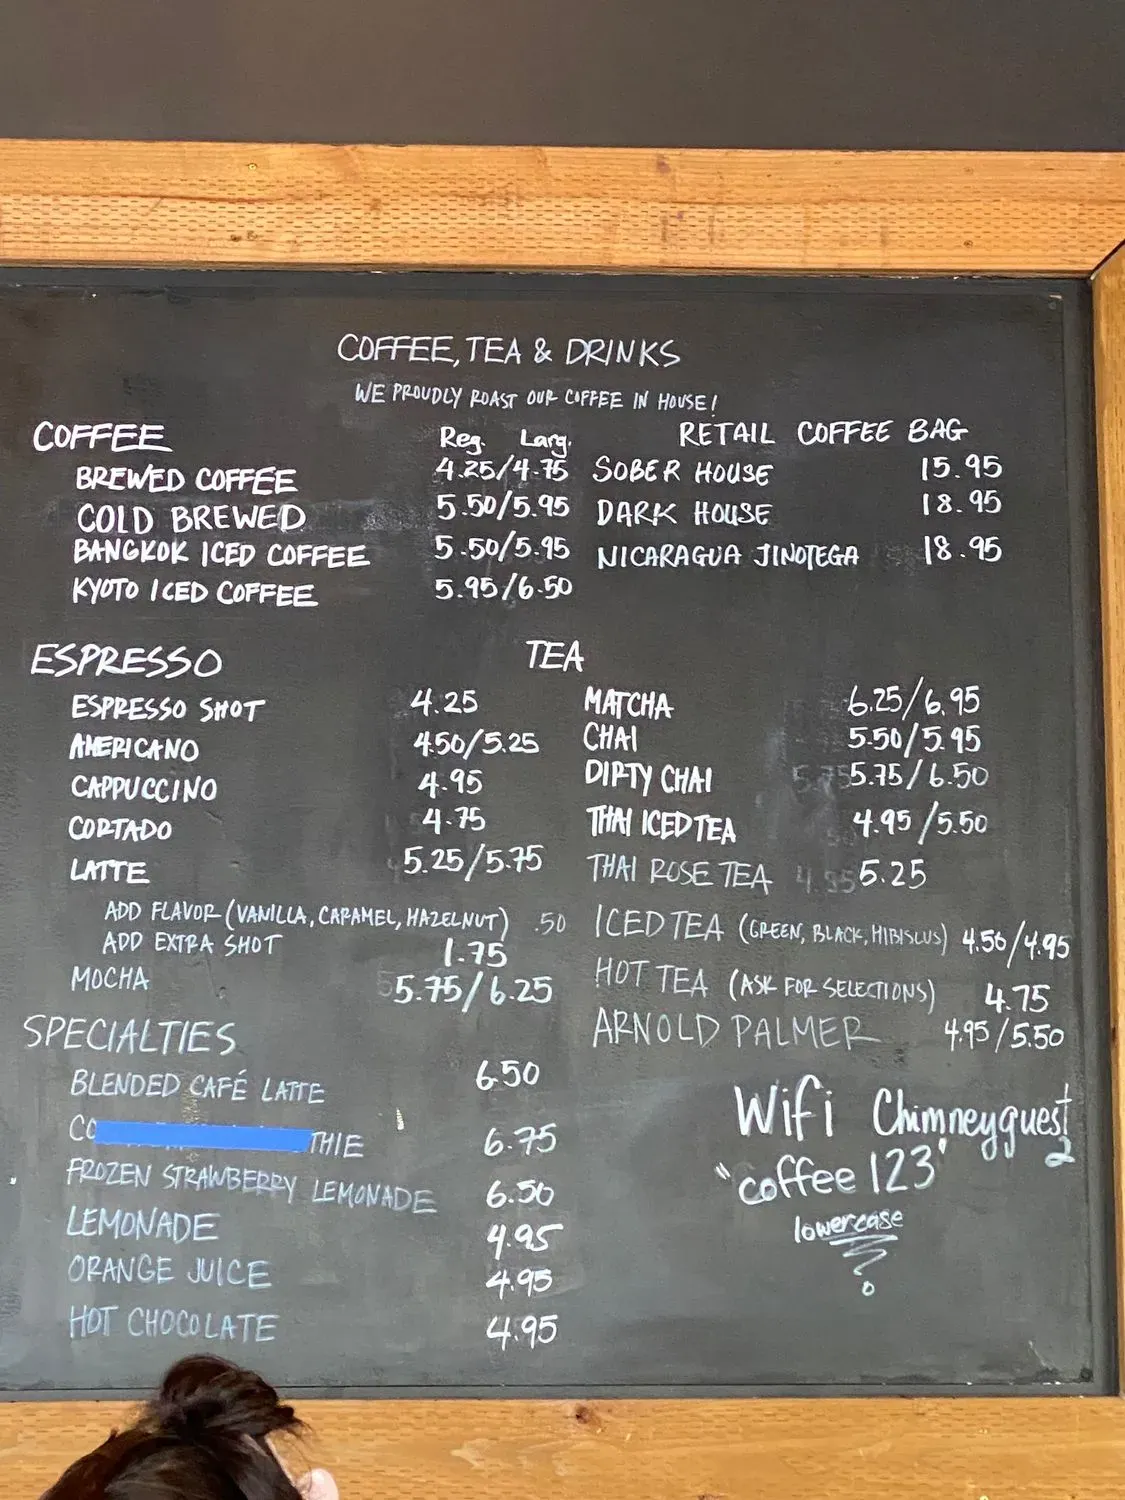 COFFEE, TEA & DRINKS
WE PROUDLY ROAST OUR COFFEE IN HOUSE!
COFFEE Reg. Larg.
BREWED COFFEE 4.25/4.75
COLD BREWED 5.50/5.95
BANGKOK ICED COFFEE 5.50/5.95
KYOTO ICED COFFEE 5.95/6.50
RETAIL COFFEE BAG
SOBER HOUSE 15.95
DARK HOUSE 18.95
NICARAGUA JINOTEGA 18.95
ESPRESSO
ESPRESSO SHOT 4.25
AMERICANO 4.50/5.25
CAPPUCCINO 4.95
CORTADO 4.75
LATTE 5.25/5.75
ADD FLAVOR (VANILLA, CARAMEL, HAZELNUT) .50
ADD EXTRA SHOT 1.75
MOCHA 5.75/6.25
TEA
MATCHA 6.25/6.95
CHAI 5.50/5.95
DIRTY CHAI 5.75/6.50
THAI ICED TEA 4.95/5.50
THAI ROSE TEA 5.25
ICED TEA (GREEN, BLACK, HIBISCUS) 4.50/4.95
HOT TEA (ASK FOR SELECTIONS) 4.75
ARNOLD PALMER 4.95/5.50
SPECIALTIES
BLENDED CAFÉ LATTE 6.50
CO THIE 6.75
FROZEN STRAWBERRY LEMONADE 6.50
LEMONADE 4.95
ORANGE JUICE 4.95
HOT CHOCOLATE 4.95
Wifi Chimneyguest
2
"coffee 123"
lowercase